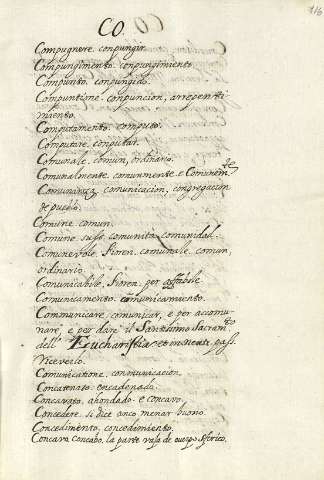 216
CO.
Compugnere. conpungir.
Compungimento. conpungimiento
Compunto. conpungido.
Compuntione. conpuncion, arrepenti
miento.
Computamento. computo.
Computare. conputar.
Comunale. comun, ordinario.
Comunalmente. comunmente. e Comunem.te
Comunanza. comunicacion, congregacion
de pueblo.
Comune. comun.
Comune. sust. comunità. comunidad.
Comunevole. fioren. comunale. comun,
ordinario.
Comunicabile. fioren. per affabile
Comunicamento. comunicamiento.
Communicare. comunicar, e per accomu-
nare, e per dare il Santissimo Sacram.to
dell' Eucharistia et in neut. pass.
riceverlo.
Comunicatione. conmunicacion.
Concatenato. encadenado.
Concavato. ahondado. e concavo.
Concedere. si dice anco menar buono.
Concedimento. concedimiento.
Concavo. la parte vasa de cuerpo sferico.